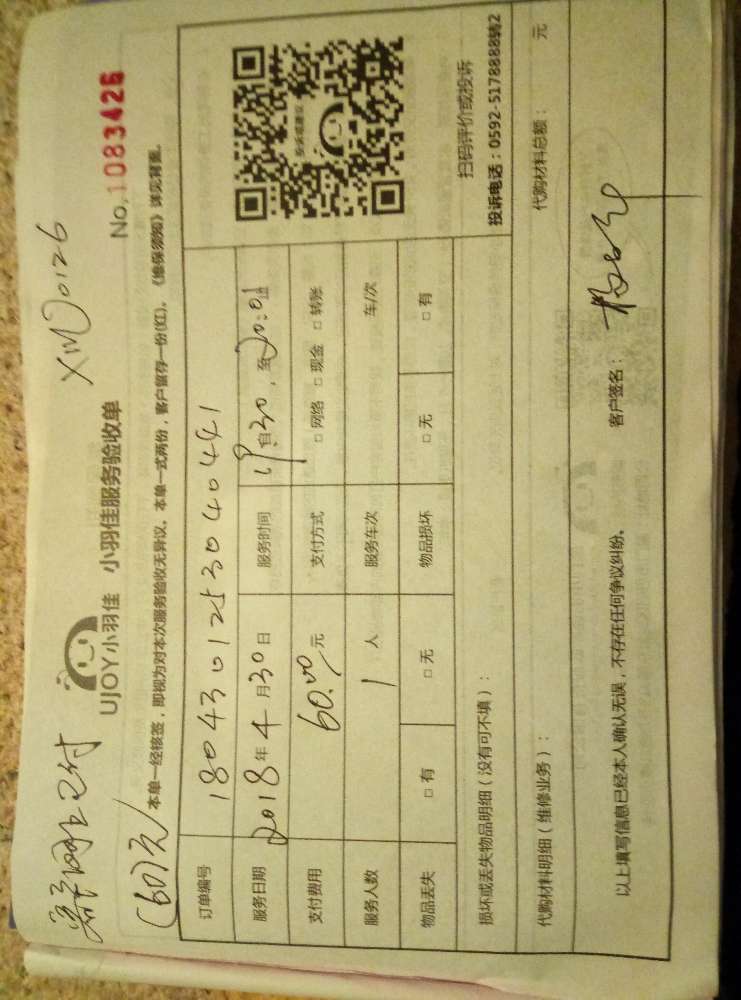 客户网上已付
(60)元
XM00126
UJOY小羽佳 小羽佳服务验收单
No.1083426
本单一经核签，即视为对本次服务验收无异议。本单一式两份，客户留存一份(红)。《维保须知》详见背面。
订单编号 180430125304044 1
服务日期 2018年4月30日 服务时间 19自30，至20:01止
支付费用 60.00元 支付方式 □网络 □现金 □转账
服务人数 1人 服务车次 车/次
物品丢失 □有 □无 物品损坏 □无 □有
扫码评价或投诉
投诉电话：0592-5178888转2
损坏或丢失物品明细（没有可不填）：
代购材料明细（维修业务）： 代购材料总额： 元
以上填写信息已经本人确认无误，不存在任何争议纠纷。 客户签名：